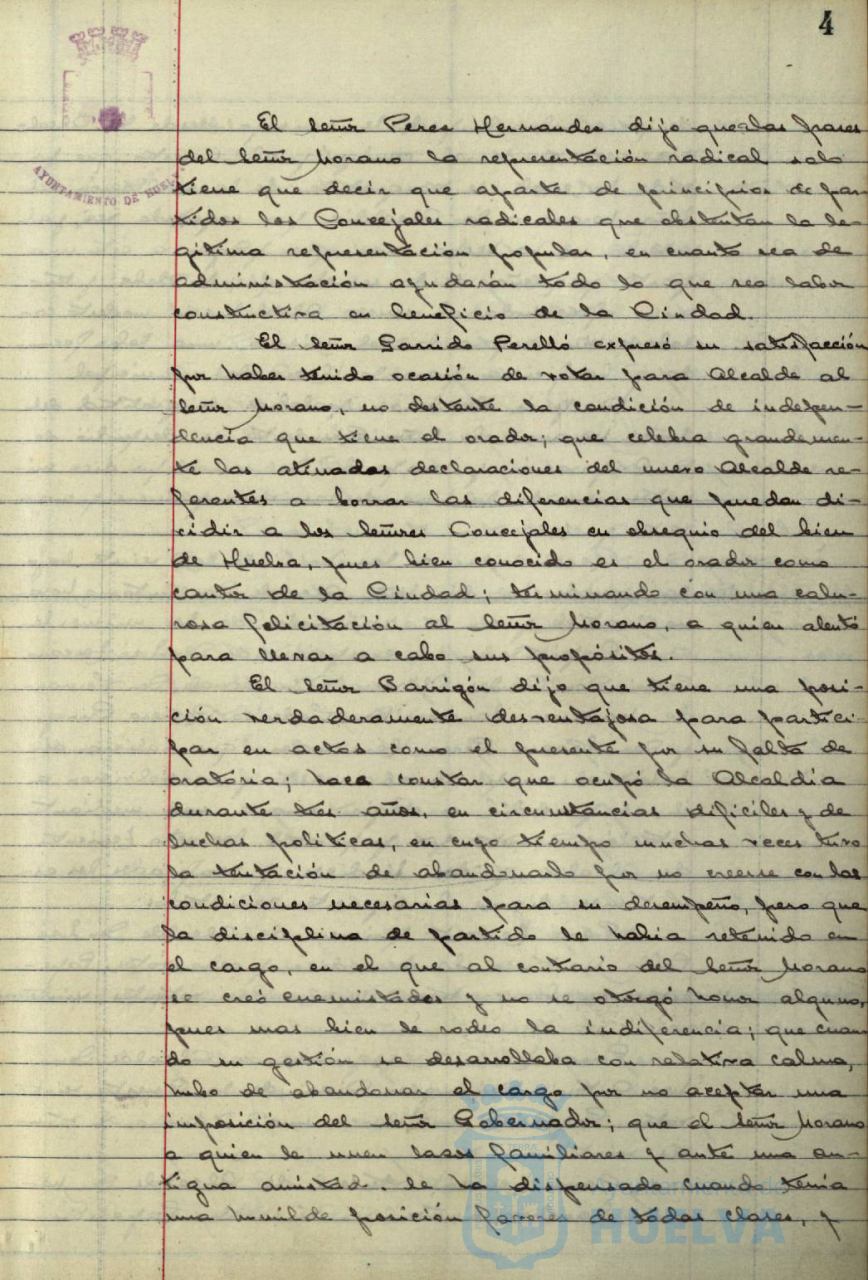 4
AYUNTAMIENTO DE HUELVA
El Señor Peres Hernandes dijo que a las frases
del Señor Morano la representación radical solo
tiene que decir que aparte de principios de par-
tidos los Concejales radicales que obstentan la le-
gitima representación popular, en cuanto sea de
administración ayudarán todo lo que sea labor
constructiva en beneficio de la Ciudad.
El Señor Garrido Perelló expresó su satisfacción
por haber tenido ocasión de votar para Alcalde al
Señor Morano, no obstante la condición de indepen-
dencia que tiene el orador; que celebra grandemen-
te las atinadas declaraciones del nuevo Alcalde re-
ferentes a borrar las diferencias que puedan di-
vidir a los Señores Concejales en obsequio del bien
de Huelva, pues bien conocido es el orador como
cantor de la Ciudad; terminando con una calu-
rosa felicitación al Señor Morano, a quien alentó
para llevar a cabo sus propósitos.
El Señor Barrigón dijo que tiene una posi-
ción verdaderamente desventajosa para partici-
par en actos como el presente por su falta de
oratoria; hace constar que ocupó la Alcaldia
durante tres años, en circunstancias dificiles y de
luchas politicas, en cuyo tiempo muchas veces tuvo
la tentación de abandonarlo por no creerse con las
condiciones necesarias para su desempeño, pero que
la disciplina de partido le habia retenido en
el cargo, en el que al contrario del Señor Morano
se creó enemistades y no se otorgó honor alguno,
pues mas bien le rodeo la indiferencia; que cuan-
do su gestión se desarrollaba con relativa calma,
hubo de abandonar el cargo por no aceptar una
imposición del Señor Gobernador; que el Señor Morano
a quien le unen lasos familiares y ante una an-
tigua amistad, le ha dispensado cuando tenia
una humilde posición favores de todas clases, y
HUELVA